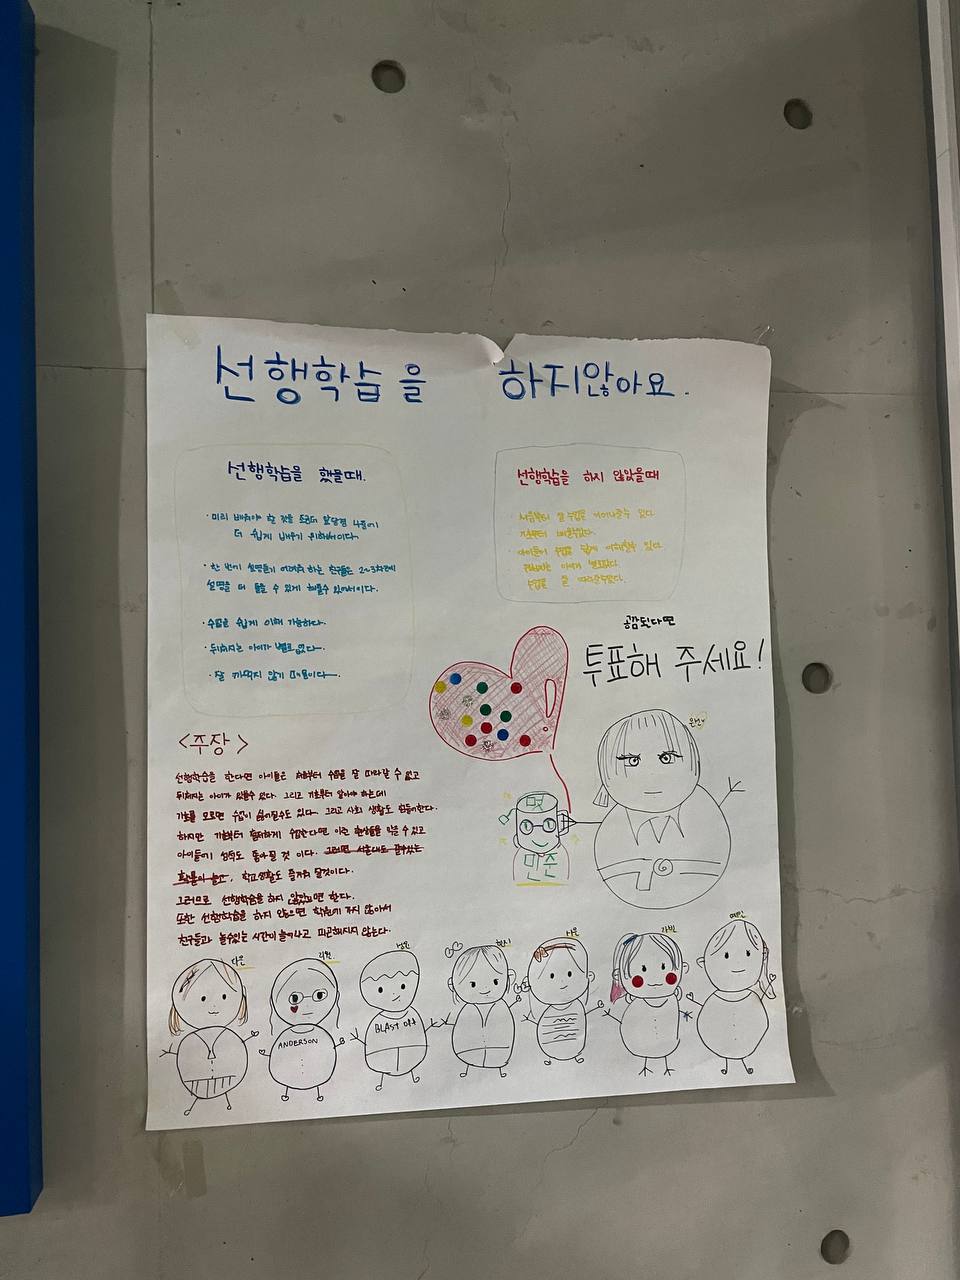 선행학습을 하지않아요.
선행학습을 했을때.
· 미리 배워야 할 것을 앞당겨
더 쉽게 배우기 위해서이다.
· 한 번에 설명듣기 어려워 하는 친구들은 2~3차례
설명을 더 들을 수 있게 해줄수 있어서이다.
· 수업을 쉽게 이해 가능하다.
· 뒤쳐지는 아이가 별로 없다.
· 잘 까먹지 않기 때문이다.
선행학습을 하지 않았을때
처음부터 잘 수 있다
기초부터 배울수있다.
아이들이 수업을 쉽게 이해할수 있다
뒤쳐지는 아이가 별로없다.
수업을 잘 따라갈수있다.
공감된다면
투표해 주세요!
<주장>
선행학습을 한다면 아이들은 처음부터 수업을 잘 따라갈 수 없고
뒤쳐지는 아이가 있을수 있다. 그리고 기초부터 알아야 하는데
기초를 모르면 수업이 싫어질수도 있다. 그리고 사회 생활도 힘들어한다.
하지만 기초부터 철저하게 수업한다면 이런 현상들을 막을 수 있고
아이들이 성적도 좋아질 것 이다. 그러면 서울대도 갈수있는
확률이 높고, 학교생활도 즐거워 질것이다.
그러므로 선행학습을 하지 않았으면 한다.
또한 선행학습을 하지 않으면 학원에 가지 않아서
친구들과 놀수있는 시간이 늘어나고 피곤해지지 않는다.
민준
다은
ANDERSON
BLAST OFF
나은
가빈
예린